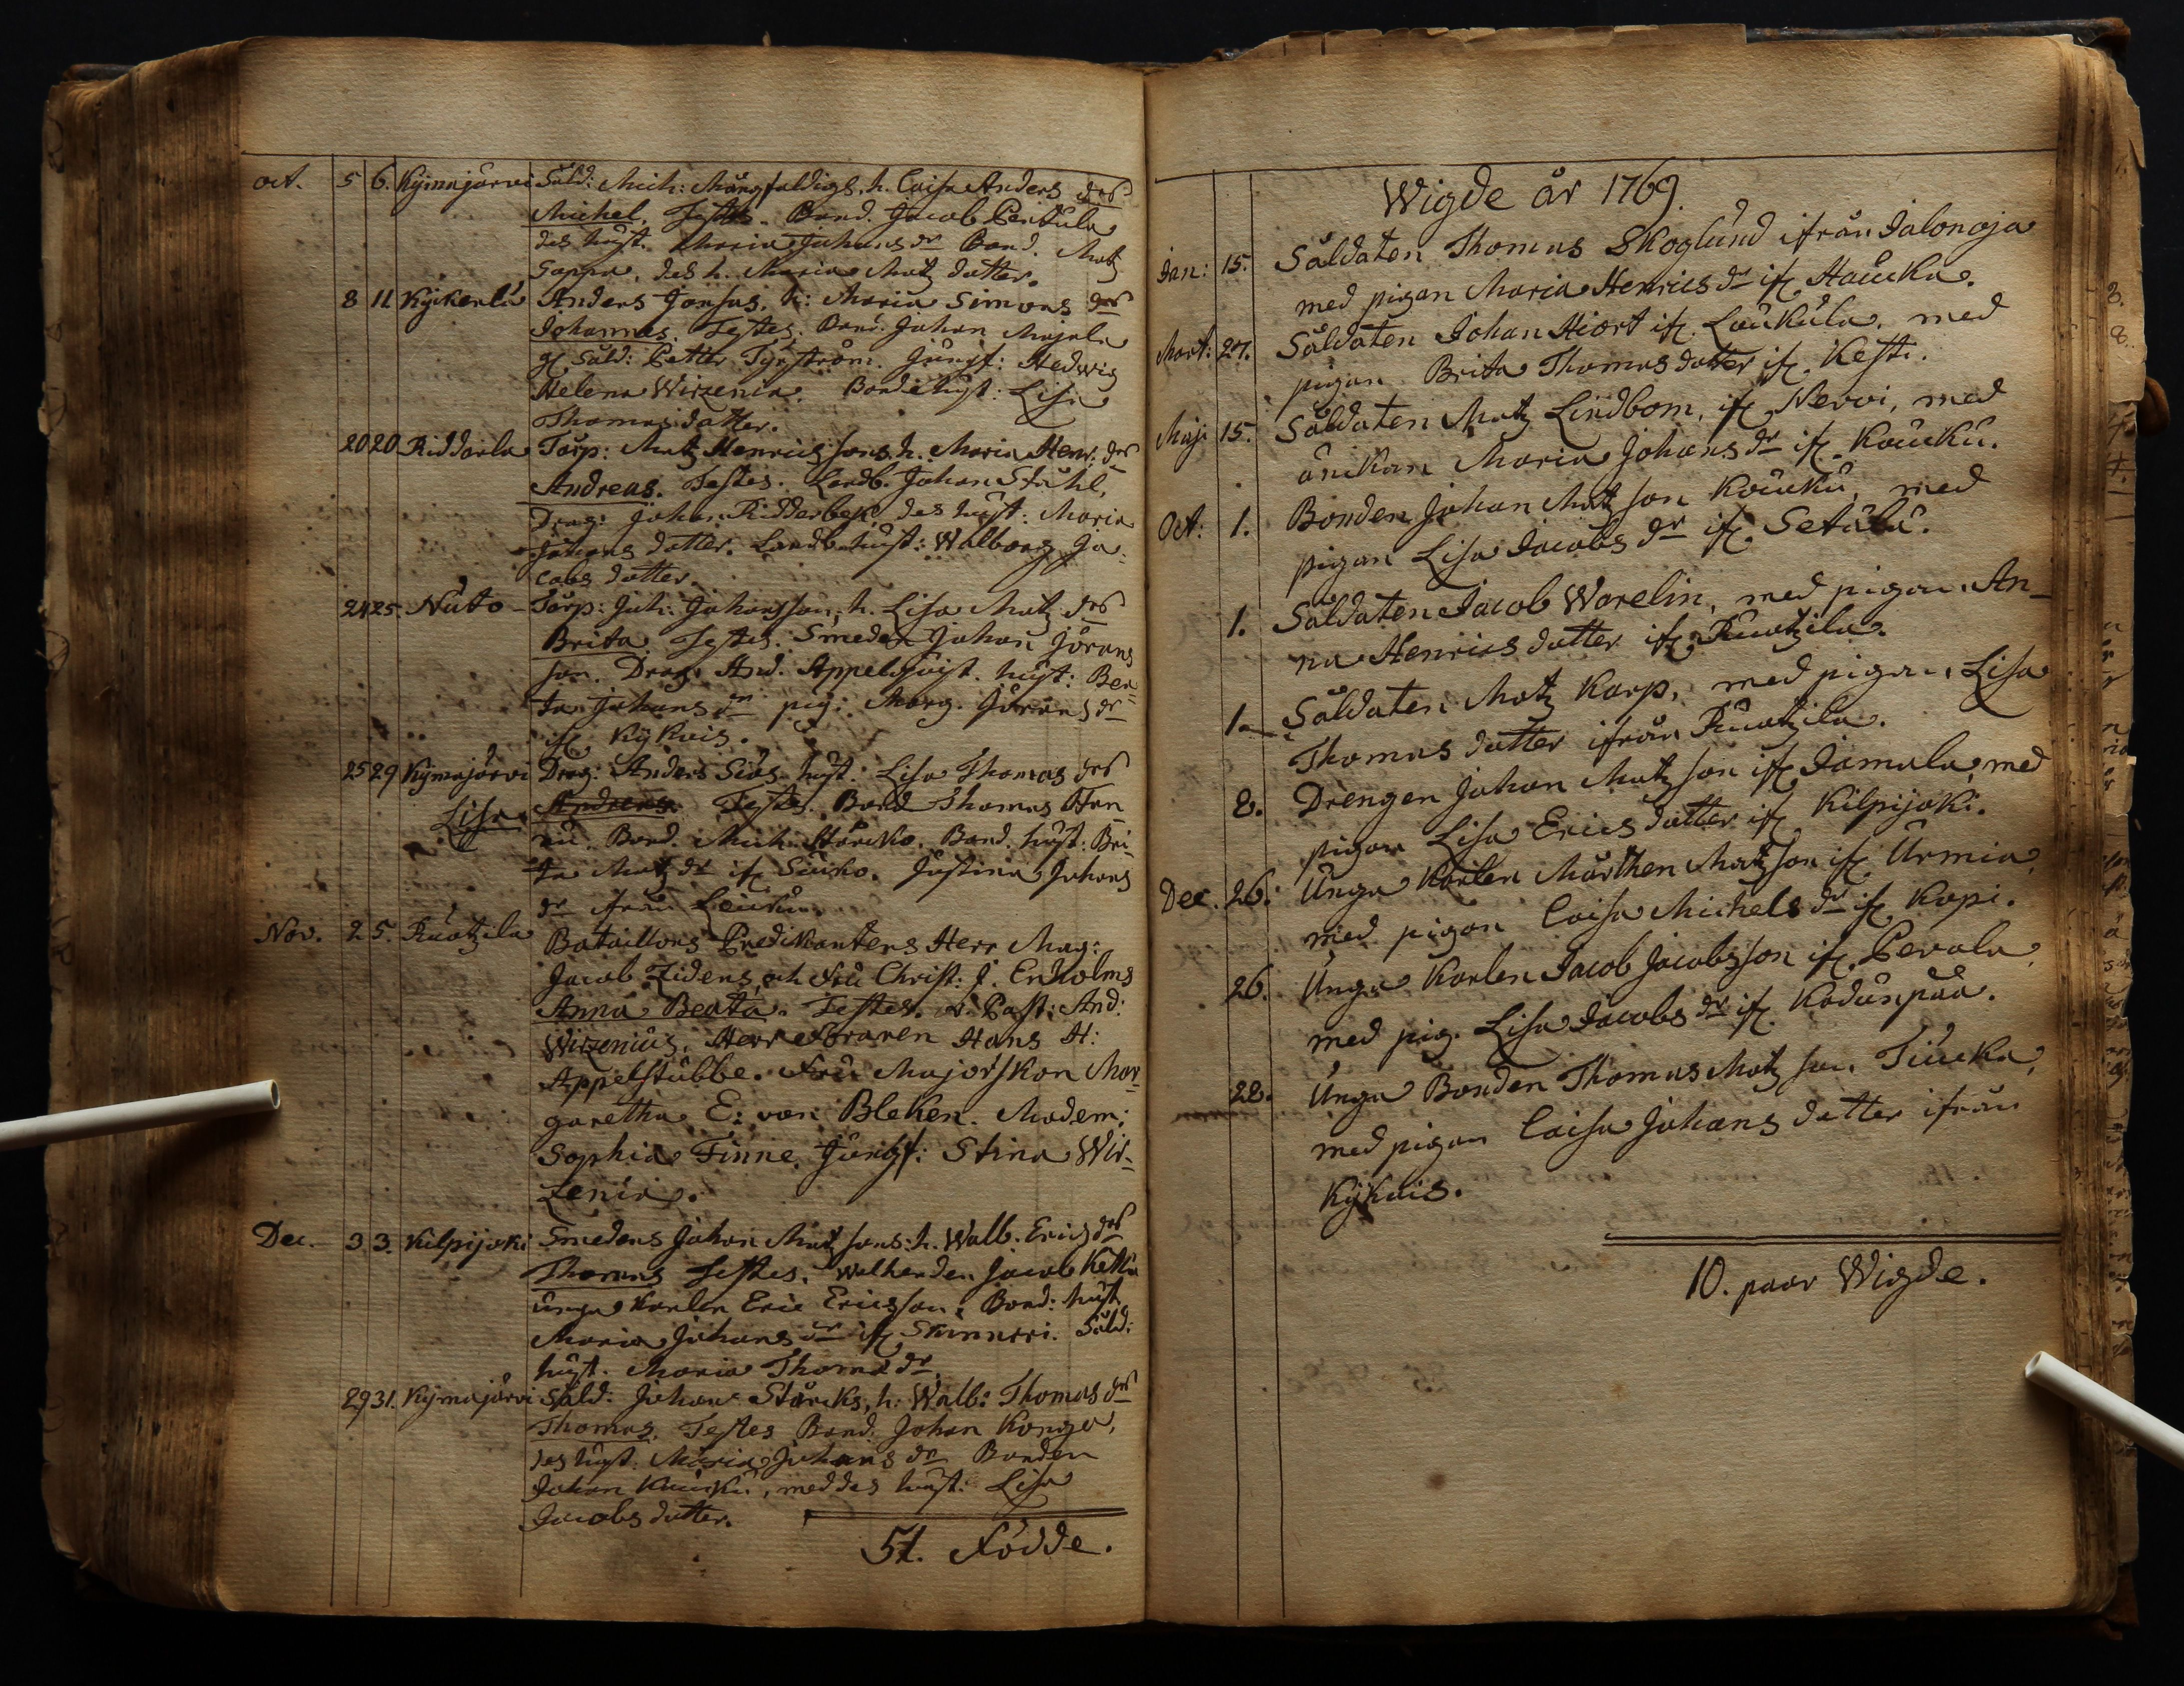 Oct. 5 6. Kijmajärvi Såld: Mich: Mångfaldigs, h. Caisa Anders drs
Michel. Testes. Bond. Jacob Pentula
des hust. Maria Johans dr Bond. Matz
Soppa, des h. Maria Matz dotter.
8 11. Kÿckerlä Anders Jonsas, h: Maria Simons drs
Johannes. Testes. Bond. Johan Majala
gl. Såld: Petter Tynström. Jungf: Hedwig
Helena Wirzenia. Bonde hust: Lisa
Thomas dotter.
20 20. Riddarla Torp: Matz Henrics sons h. Maria Henr: drs
Andreas. Testes. Landb. Johan Ståhl,
Drag: Johan Ridderbeck des hust: Maria
Johans dotter. Landb. hust: Walborg Ja-
cobs dotter.
24 25. Nuto Torp: Joh: Johansson, h. Lisa Matz drs
Brita. Testes. Smeden Johan Jörans
son. Drag: And. Appelqwist. hust: Ber-
ta Johans dr pig: Marg. Jörans dr
ifr. Kÿkvis.
25 29 Kijmajärvi Drag: Anders Siös hust: Lisa Thomas drs
Lisa. Andreas. Testes. Bond Thomas
Bond. Mich: Starcko. Bond. hust: Bri-
ta Matz dr ifr. Suicko. Justina Johans
dr ifrån
Nov. 2 5. Ruotzila Bataillons Predikantens Herr Mag:
Jacob Zidens, och Fru Christ: J. Enholms
Anna Beata. Testes. v. Past: And:
Wirzenius, Herr Horaren Hans H:
Appelstubbe. Fru Majorskan Mar-
garetha E: von Bleken. Madem:
Sophia Finne. Jungf: Stina Wir-
zenia.
Dec. 3 3. Kilpijoki Smedens Johan Matz sons: h. Walb. Erics drs
Thomas Testes. Jacob
unga Karlen Eric Ericsson. Bond: hust
Maria Johans dr ifr. Skinnari. Såld:
hust. Maria Thoma dr.
29 31. Kijmajärvi Såld: Johan Starcks, h: Walb: Thomas drs
Thomas. Testes Bond. Johan Konga,
des hust: Maria Johans dr Bonden
Johan Kaucku, med des hust: Lisa
Jacobs dotter.
51. Födde.
Wigde år 1769.
Jan: 15. Såldaten Thomas Skoglund ifrån Jalonoja
med pigan Maria Henrics dr ifr. Haucka.
Mart: 27. Såldaten Johan Hiort ifr. Laukula, med
pigan Brita Thomas dotter ifr. Kesti.
Maji 15. Såldaten Matz Lindbom, ifr. Nervi, med
änikan Maria Johans dr ifr. Kaucku.
Oct: 1. Bonden Johan Matz son Kaucku, med
pigan Lisa Jacobs dr ifr. Setälä.
1. Såldaten Jacob Warelin, med pigan An-
na Henrics dotter ifr. Ruotzila.
1. Såldaten Matz Karp, med pigan Lisa
Thomas dotter ifrån Ruotzila.
8. Drengen Johan Matz son ifr. Jamala, med
pigan Lisa Erics dotter ifr. Kilpijoki.
Dec. 26. Unga Karlen Mårthen Matz son ifr. Urmia,
med pigan Caisa Michels dr ifr. Kopi.
26. Unga Karlen Jacob Jacobsson ifr. Perala,
med pig. Lisa Jacobs dr ifr. Kadunpää.
28. Unga Bonden Thomas Matz son Tiucka,
med pigan Caisa Johans dotter ifrån
Kÿkvis.
10. paar Wigde.